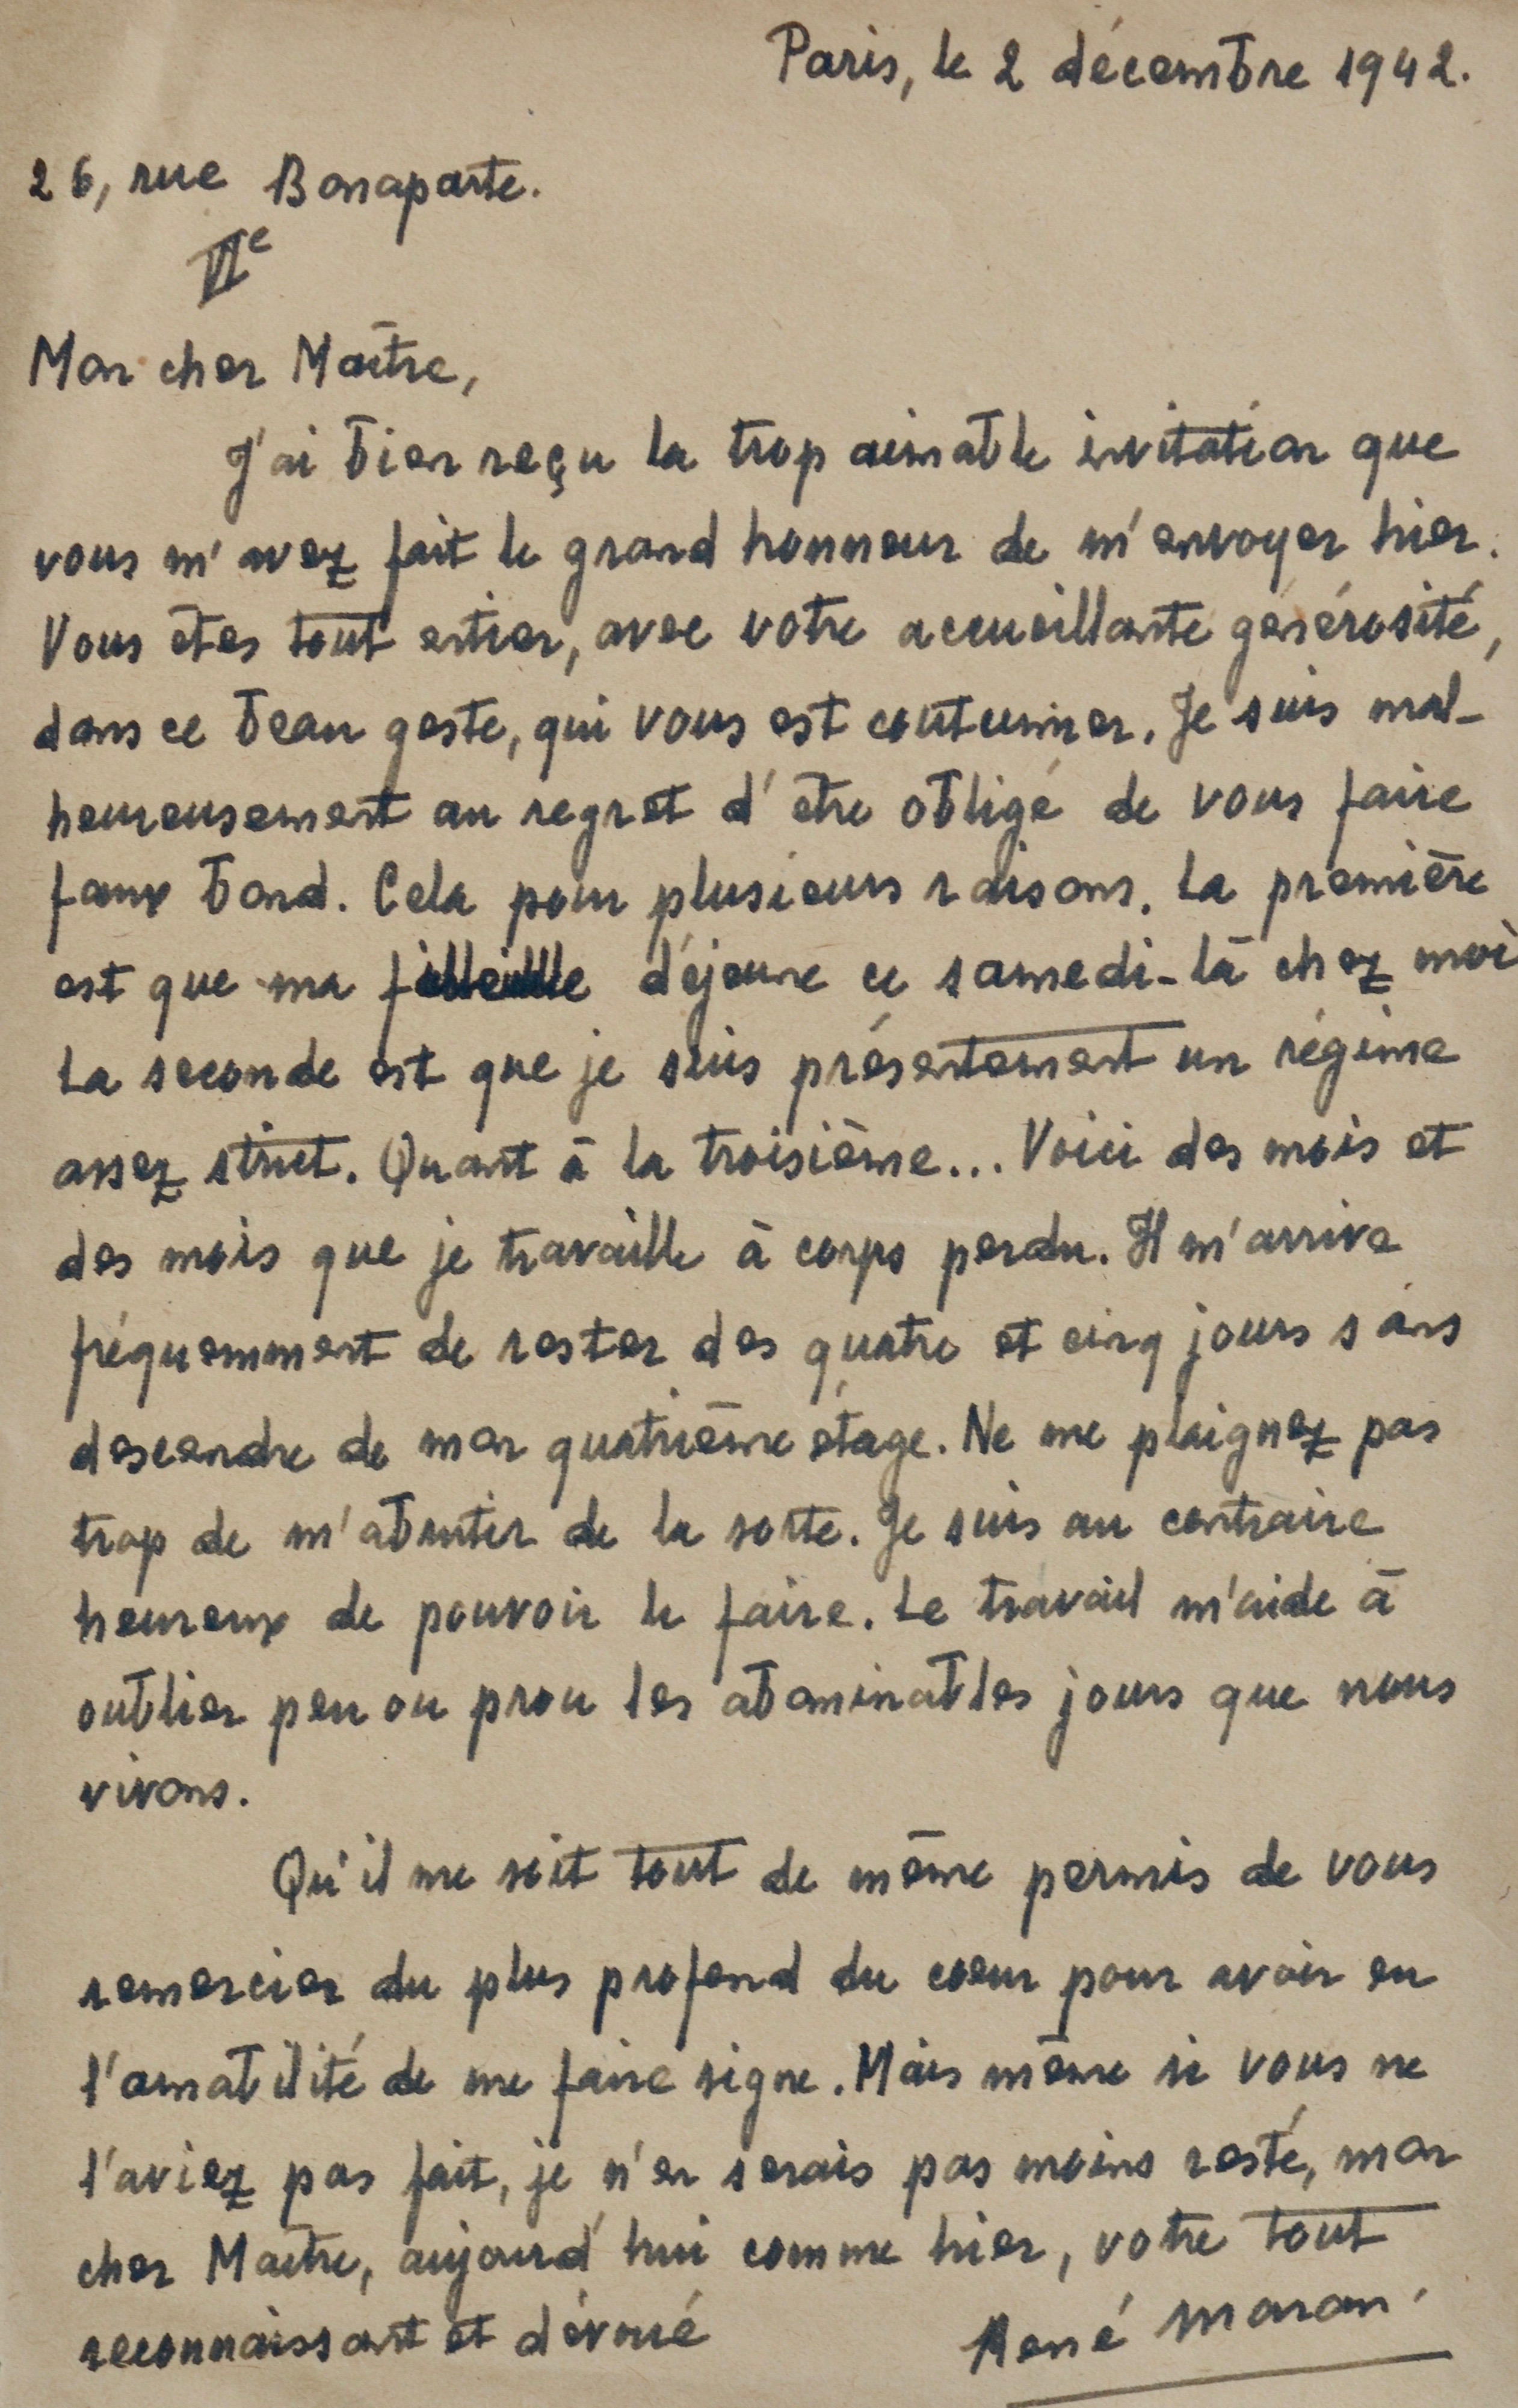 Paris, le 2 décembre 1942.
26, rue Bonaparte.
VIe
Mon cher Maître,
J'ai bien reçu la trop aimable invitation que
vous m'avez fait le grand honneur de m'envoyer hier.
Vous êtes tout entier, avec votre accueillante générosité,
dans ce beau geste, qui vous est coutumier. Je suis mal-
heureusement au regret d'être obligé de vous faire
faux bond. Cela pour plusieurs raisons. La première
est que ma filleule déjeune ce samedi-là chez moi
La seconde est que je suis présentement un régime
assez strict. Quant à la troisième... Voici des mois et
des mois que je travaille à corps perdu. Il m'arrive
fréquemment de rester des quatre et cinq jours sans
descendre de mon quatrième étage. Ne me plaignez pas
trop de m'abrutir de la sorte. Je suis au contraire
heureux de pouvoir le faire. Le travail m'aide à
oublier peu ou prou les abominables jours que nous
vivons.
Qu'il me soit tout de même permis de vous
remercier du plus profond du coeur pour avoir eu
l'amabilité de me faire signe. Mais même si vous ne
l'aviez pas fait, je n'en serais pas moins resté, mon
cher Maître, aujourd'hui comme hier, votre tout
reconnaissant et dévoué
René Maran.